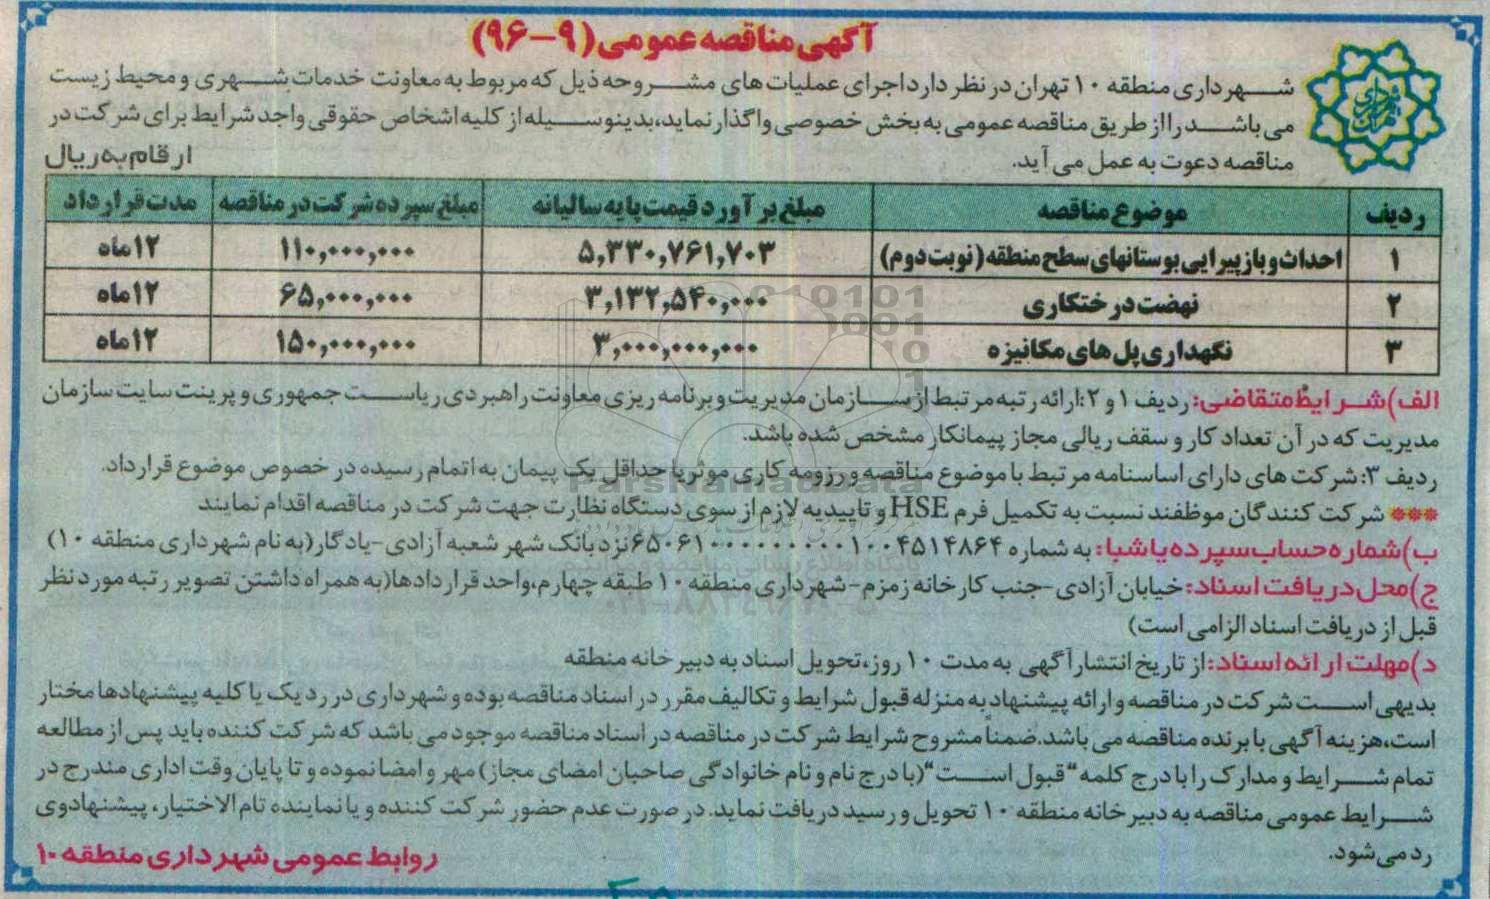 آگهی مناقصه عمومی (۹-۹۶)
شهرداری منطقه ۱۰ تهران در نظر دارد اجرای عملیات های مشروحه ذیل که مربوط به معاونت خدمات شهری و محیط زیست
می باشد را از طریق مناقصه عمومی به بخش خصوصی واگذار نماید، بدینوسیله از کلیه اشخاص حقوقی واجد شرایط برای شرکت در
مناقصه دعوت به عمل می آید.
ارقام به ریال
ردیف موضوع مناقصه مبلغ برآورد قیمت پایه سالیانه مبلغ سپرده شرکت در مناقصه مدت قرارداد
۱ احداث و بازپیرایی بوستانهای سطح منطقه (نوبت دوم) ۵,۳۳۰,۷۶۱,۷۰۳ ۱۱۰,۰۰۰,۰۰۰ ۱۲ ماه
۲ نهضت درختکاری ۳,۱۳۲,۵۴۰,۰۰۰ ۶۵,۰۰۰,۰۰۰ ۱۲ ماه
۳ نگهداری پل های مکانیزه ۳,۰۰۰,۰۰۰,۰۰۰ ۱۵۰,۰۰۰,۰۰۰ ۱۲ ماه
الف) شرایط متقاضی: ردیف ۱ و ۲: ارائه رتبه مرتبط از سازمان مدیریت و برنامه ریزی معاونت راهبردی ریاست جمهوری و پرینت سایت سازمان
مدیریت که در آن تعداد کار و سقف ریالی مجاز پیمانکار مشخص شده باشد.
ردیف ۳: شرکت های دارای اساسنامه مرتبط با موضوع مناقصه و رزومه کاری موثر یا حداقل یک پیمان به اتمام رسیده در خصوص موضوع قرارداد.
*** شرکت کنندگان موظفند نسبت به تکمیل فرم HSE و تاییدیه لازم از سوی دستگاه نظارت جهت شرکت در مناقصه اقدام نمایند
ب) شماره حساب سپرده یا شبا: به شماره ۶۵۰۶۱۰۰۰۰۰۰۰۰۰۰۱۰۰۴۵۱۴۸۶۴ نزد بانک شهر شعبه آزادی-یادگار (به نام شهرداری منطقه ۱۰)
ج) محل دریافت اسناد: خیابان آزادی-جنب کارخانه زمزم-شهرداری منطقه ۱۰ طبقه چهارم، واحد قراردادها (به همراه داشتن تصویر رتبه مورد نظر
قبل از دریافت اسناد الزامی است)
د) مهلت ارائه اسناد: از تاریخ انتشار آگهی به مدت ۱۰ روز، تحویل اسناد به دبیرخانه منطقه
بدیهی است شرکت در مناقصه و ارائه پیشنهاد به منزله قبول شرایط و تکالیف مقرر در اسناد مناقصه بوده و شهرداری در رد یک یا کلیه پیشنهادها مختار
است، هزینه آگهی با برنده مناقصه می باشد. ضمناً مشروح شرایط شرکت در مناقصه در اسناد مناقصه موجود می باشد که شرکت کننده باید پس از مطالعه
تمام شرایط و مدارک را با درج کلمه "قبول است" (با درج نام و نام خانوادگی صاحبان امضای مجاز) مهر و امضا نموده و تا پایان وقت اداری مندرج در
شرایط عمومی مناقصه به دبیرخانه منطقه ۱۰ تحویل و رسید دریافت نماید. در صورت عدم حضور شرکت کننده و یا نماینده تام الاختیار، پیشنهاد وی
رد می شود.
روابط عمومی شهرداری منطقه ۱۰